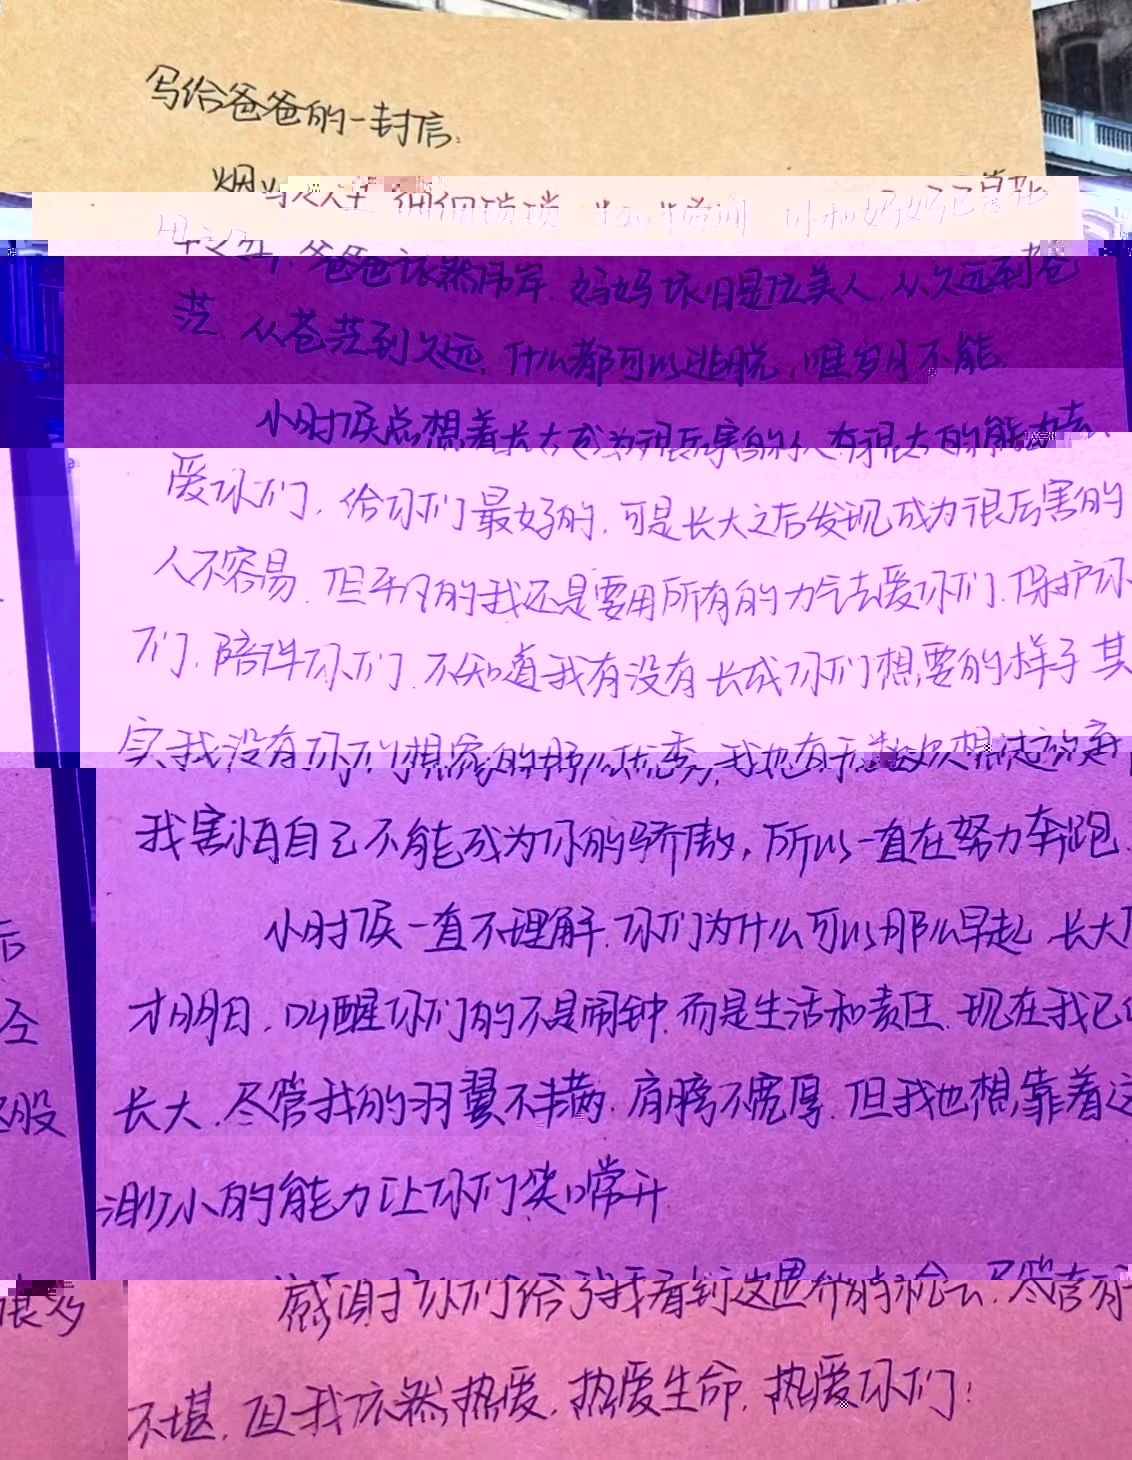 写给爸爸的一封信:
烟火人生 细细琐琐 你和妈妈已算
年之外. 爸爸依然伟岸. 妈妈依旧是位美人. 从久远到苍
茫. 从苍茫到久远. 什么都可以逃脱, 唯岁月不能.
小时候总想着长大成为很厉害的人 有很大的能力去
爱你们. 给你们最好的. 可是长大之后发现成为很厉害的
人不容易. 但平凡的我还是要用所有的力气去爱你们. 保护你
们. 陪伴你们. 不知道我有没有长成你们想要的样子 其
实我没有你们想象的那么优秀, 我也有无数次想过放弃
我害怕自己不能成为你的骄傲, 所以一直在努力奔跑.
小时候一直不理解. 你们为什么可以那么早起. 长大
才明白. 叫醒你们的不是闹钟. 而是生活和责任. 现在我已
长大. 尽管我的羽翼不丰满. 肩膀不宽厚. 但我也想靠着这
渺小的能力让你们笑口常开
感谢你们给了我看到这世界的机会. 尽管有
不堪. 但我依然热爱. 热爱生命. 热爱你们!
后
股
很多